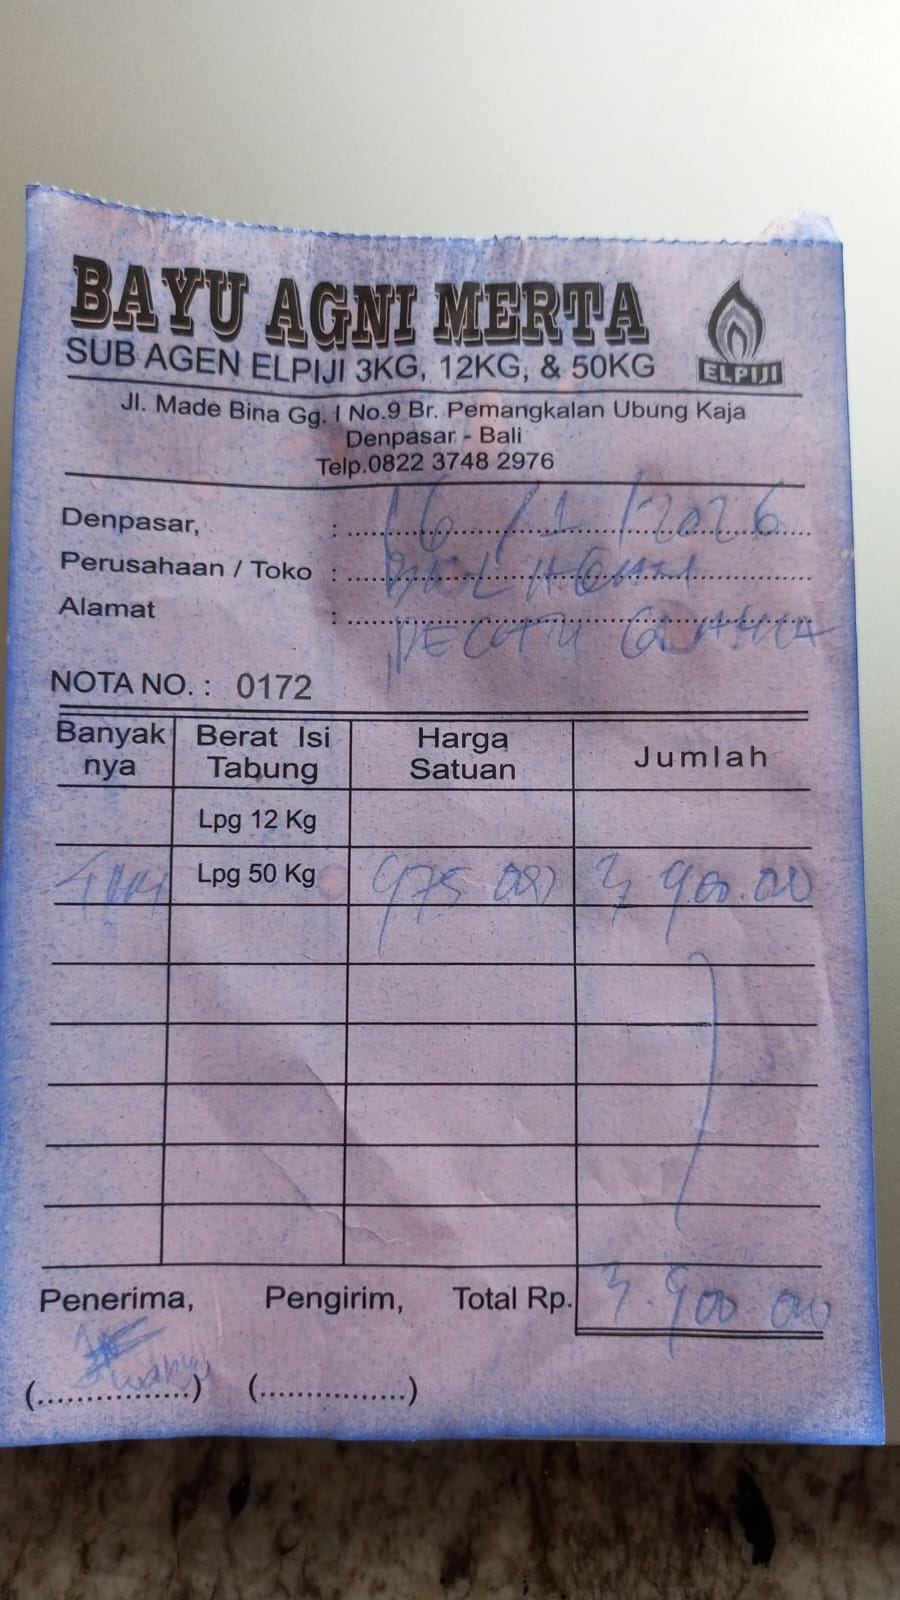 BAYU AGNI MERTA
SUB AGEN ELPIJI 3KG, 12KG, & 50KG
ELPIJI
Jl. Made Bina Gg. I No.9 Br. Pemangkalan Ubung Kaja
Denpasar - Bali
Telp.0822 3748 2976
Denpasar, : 16/1/2026
Perusahaan / Toko :
Alamat : PECATU GRAHA
NOTA NO. : 0172
Banyak nya Berat Isi Tabung Harga Satuan Jumlah
Lpg 12 Kg
4 Lpg 50 Kg 975 000 3 900.000
Penerima, Pengirim, Total Rp. 3.900 000
(................) (................)